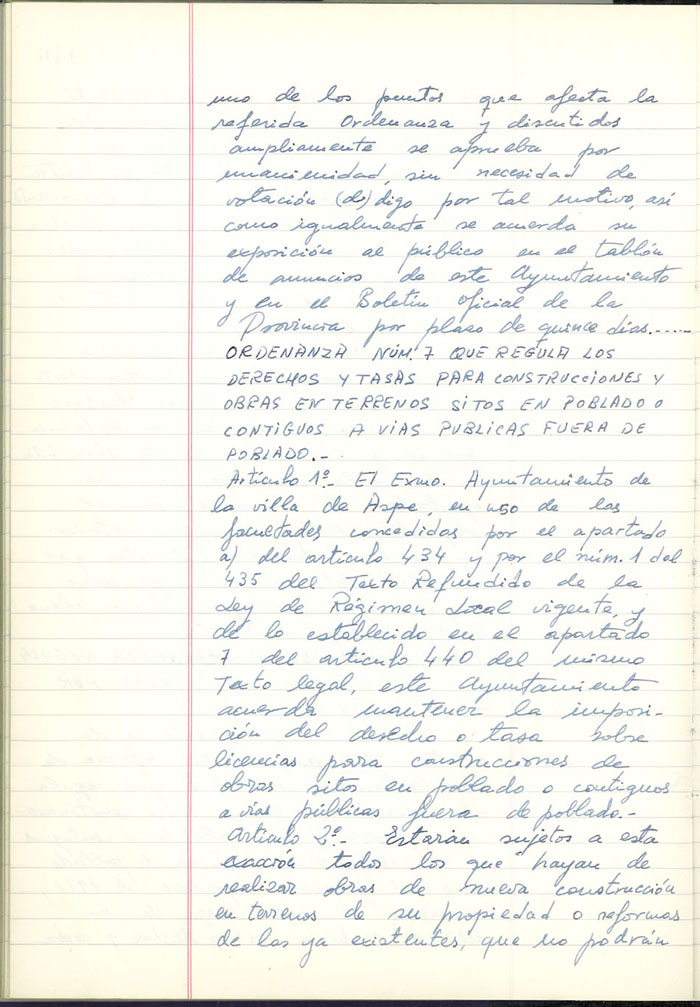 uno de los puntos que afecta la
referida Ordenanza y discutidos
ampliamente se aprueba por
unanimidad, sin necesidad de
votación (de) digo por tal motivo, así
como igualmente se acuerda su
exposición al público en el tablón
de anuncios de este Ayuntamiento
y en el Boletín Oficial de la
Provincia por plazo de quince días.-----
ORDENANZA NÚM. 7 QUE REGULA LOS
DERECHOS Y TASAS PARA CONSTRUCCIONES Y
OBRAS EN TERRENOS SITOS EN POBLADO O
CONTIGUOS A VÍAS PUBLICAS FUERA DE
POBLADO.-
Artículo 1º.- El Exmo. Ayuntamiento de
la villa de Aspe, en uso de las
facultades concedidas por el apartado
a) del artículo 434 y por el núm. 1 del
435 del Texto Refundido de la
Ley de Régimen Local vigente, y
de lo establecido en el apartado
7 del artículo 440 del mismo
Texto legal, este Ayuntamiento
acuerda mantener la imposi-
ción del derecho o tasa sobre
licencias para construcciones de
obras sitos en poblado o contiguos
a vías públicas fuera de poblado.-
Artículo 2º.- Estarán sujetos a esta
exacción todos los que hayan de
realizar obras de nueva construcción
en terrenos de su propiedad o reformas
de las ya existentes, que no podrán